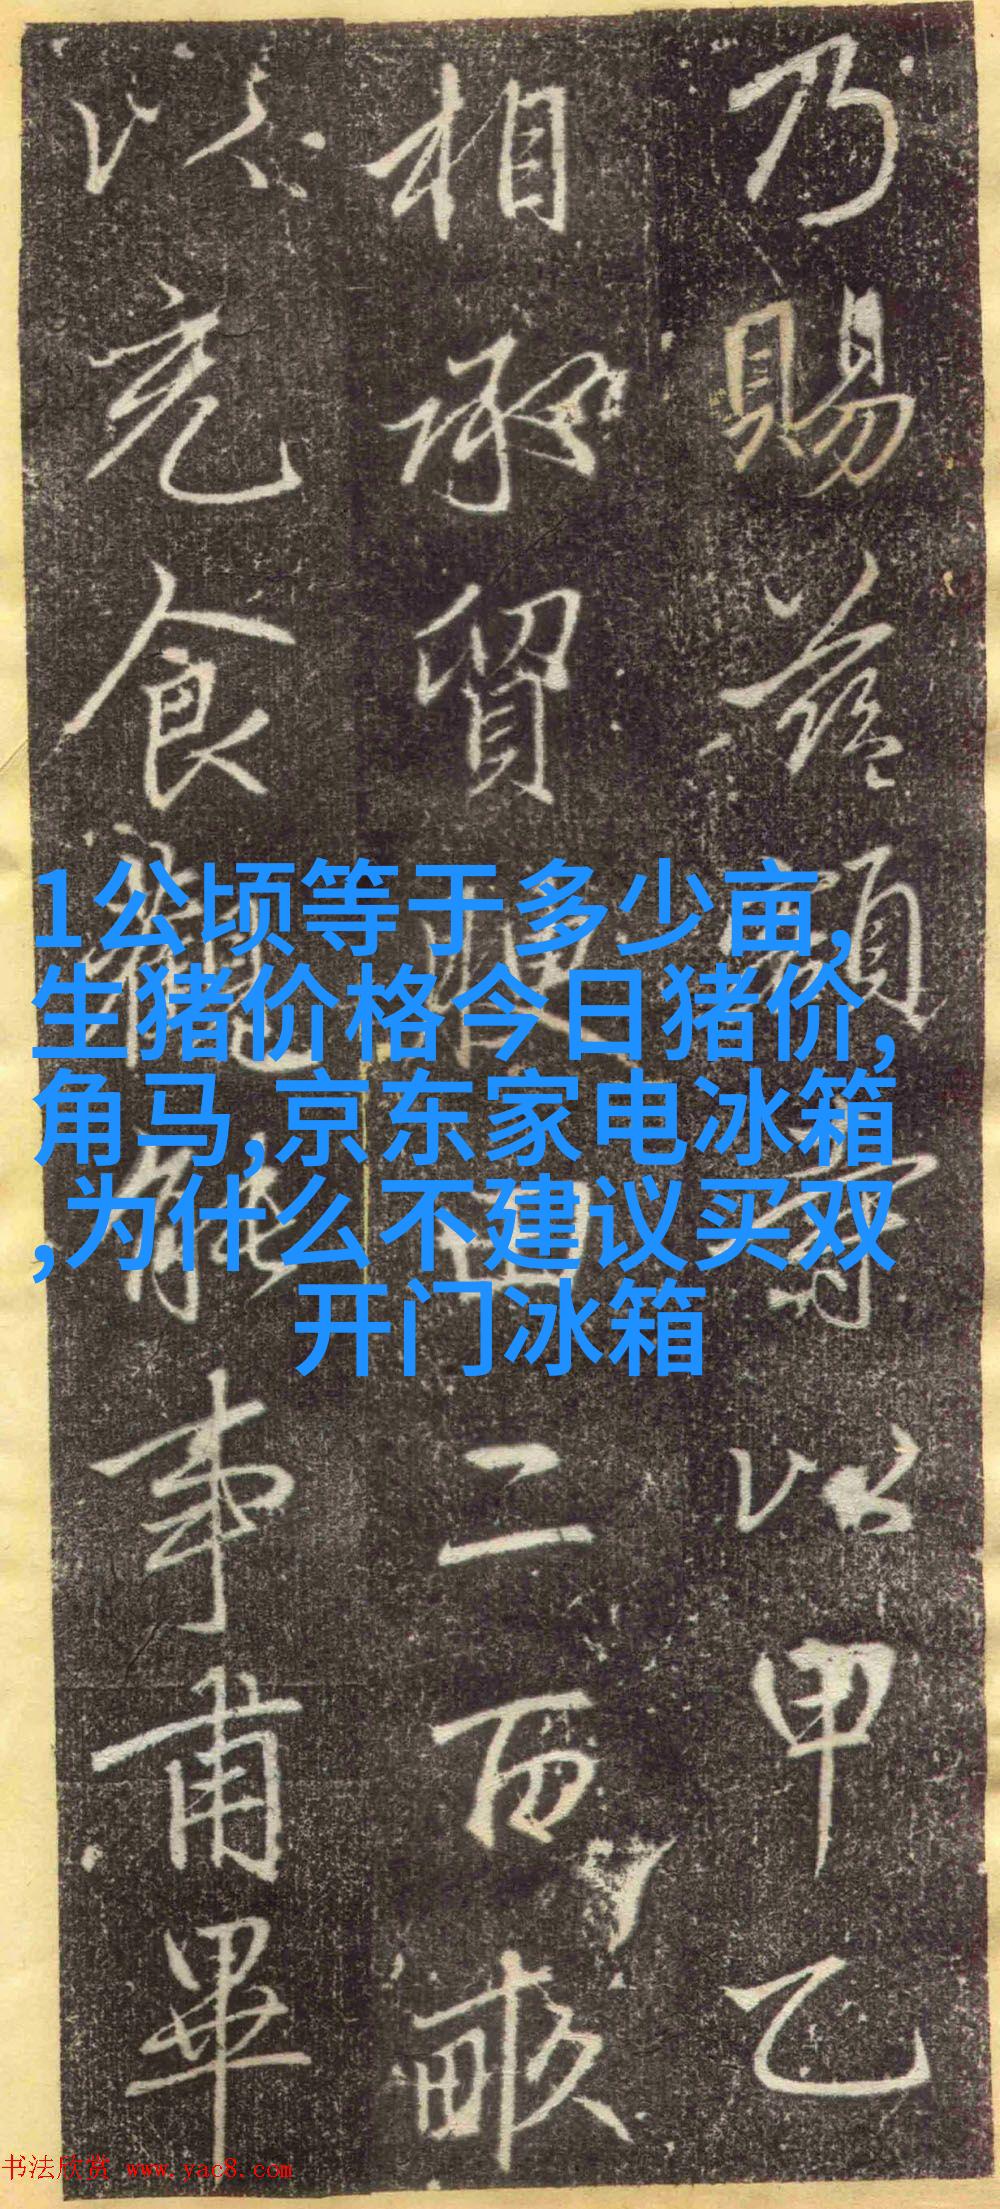 乃賜益頑□以甲乙
相承質□田二百畝
以充食□能事甫畢
1公顷等于多少亩,
生猪价格今日猪价,
角马,京东家电冰箱
,为什么不建议买双
开门冰箱
书法欣赏 www.yac8.com